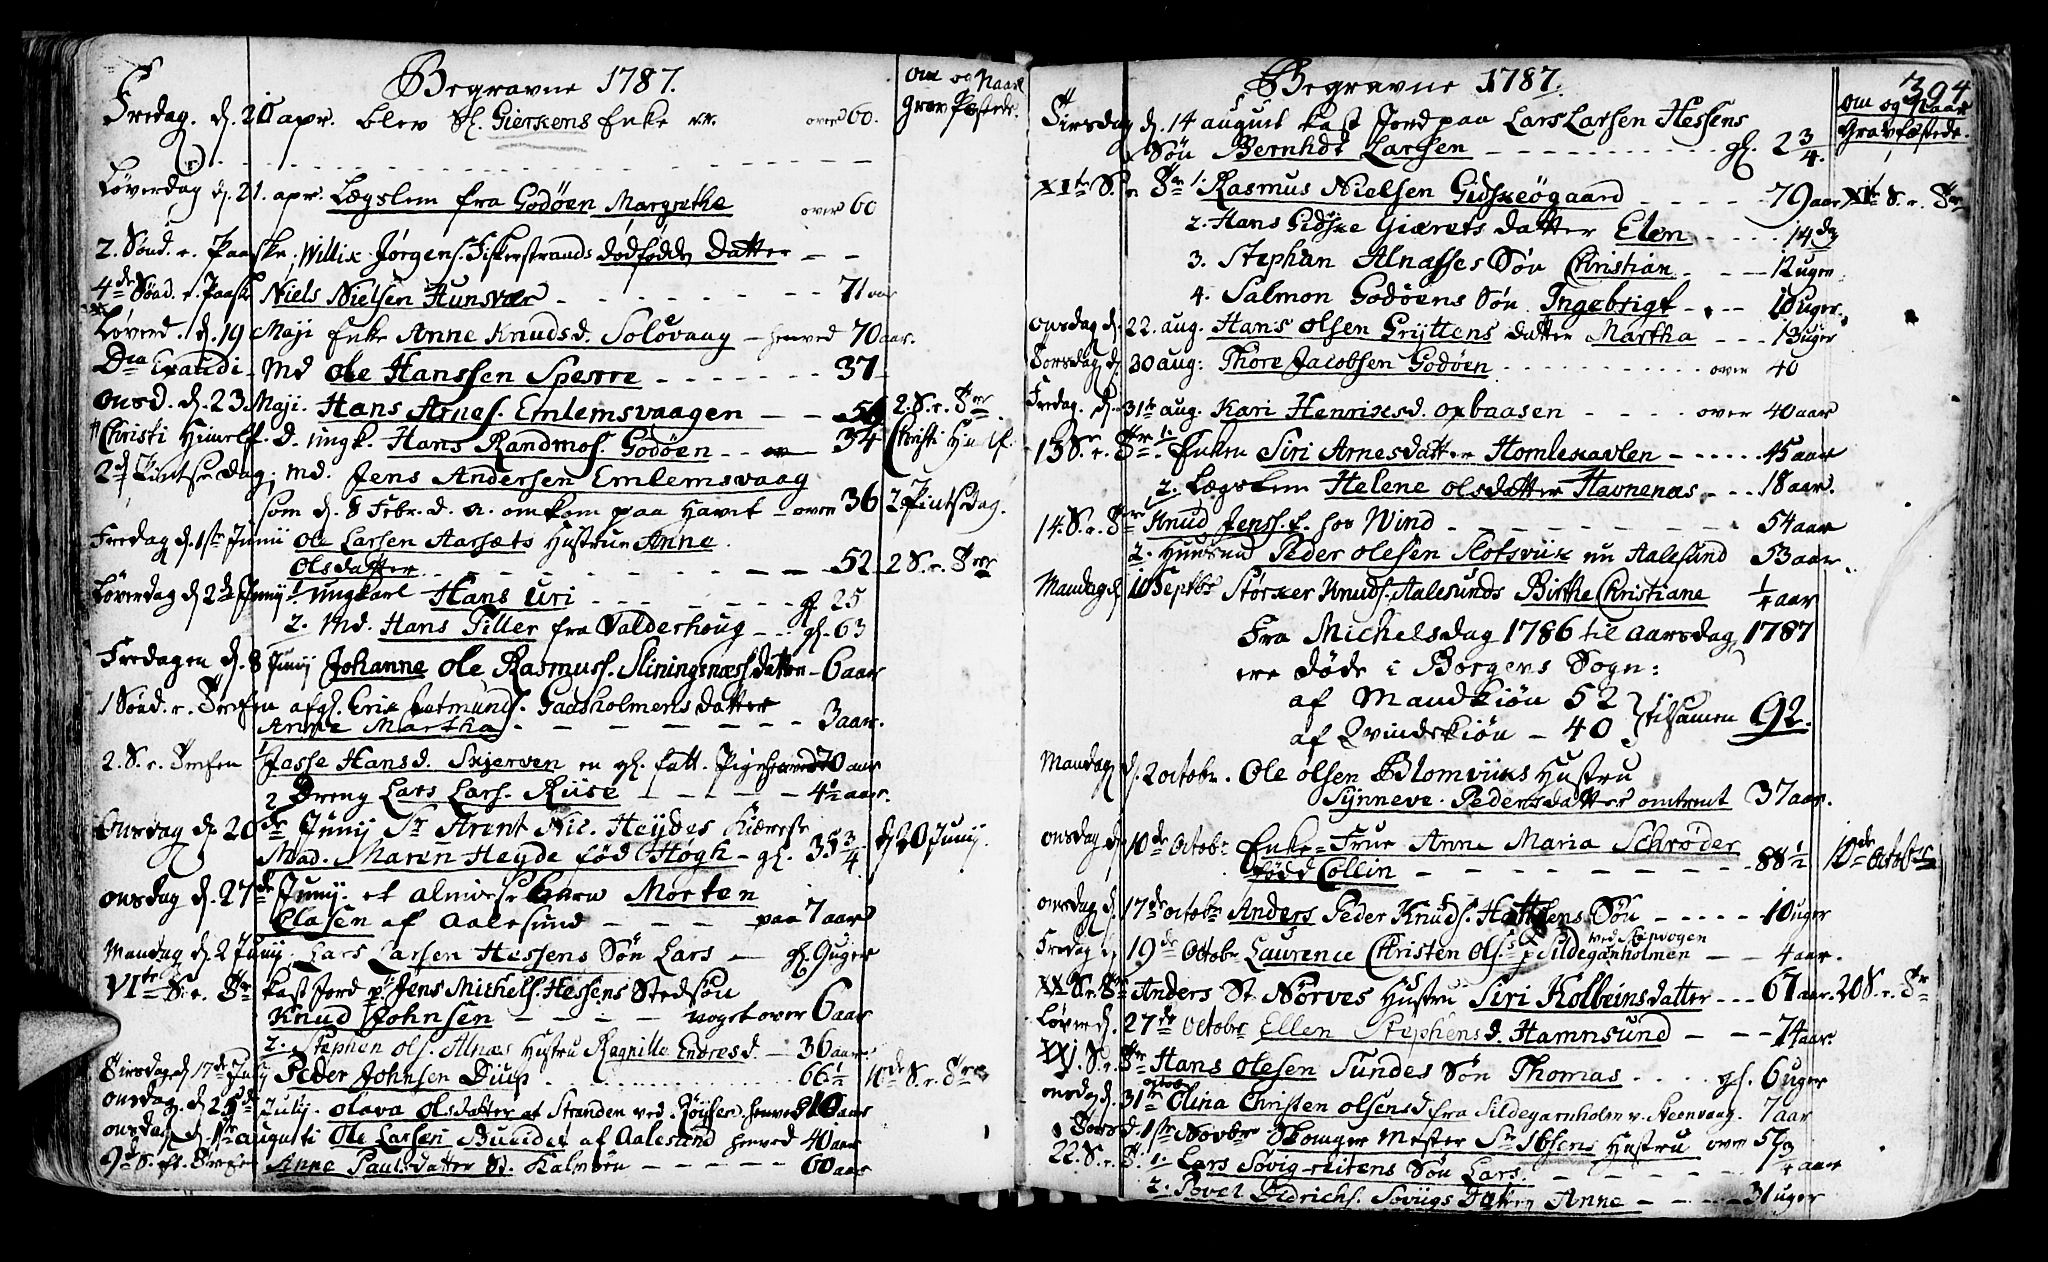 Begravne 1787.
Om og Naar
Grav Fæstede.
Fredag. d. 20 apr. blev Sl. Gierxens Enke
over 60.
Løverdag d. 21. apr. Lægslem fra Godøen Margrethe
over 60
2. Sønd. e. Paaske. Willix Jørgens. Fiskerstrands dødfødde Datter - -
4de Sønd. e. Paaske Niels Nielsen Hunsvær - - - 71 aar
Løverd. d. 19 Maji Enke Anne Knudsd. Soløvaag - henved 70 aar.
Dca Exaudi - Md Ole Hanssen Sperre - - - 37
Onsd. d. 23. Maji. Hans Arnes. Emlemsvaagen - - 56 2. S. e. Tr
Christi Himelf. d. ungk. Hans Randmos. Godøen - - 34 Christi Himlf.
2d Pintsedag; Md. Jens Andersen Emlemsvaag
som d. 8 Febr. d. a. omkom paa Havet - over 36 2 Pintsedag.
Fredag d. 1ste Junii Ole Larsen Aarsæts Hustrue Anne
Olsdatter - - - 52 2 S. e. Tr
Løverdag d 2de Junij 1. ungkarl Hans Uri - - - gl 25
2. Md. Hans Giller fra Valderhoug - - gl. 63
Fredagen d. 8 Junij Johanne Ole Rasmuss. Sliningsnæss datter - 6 aar
1 Sønd. e. Trefen afgl. Eric Aetmunds. Gaasholmens datter
Anne Martha - - - 3 aar.
2. S. e. Trefen 1 Jasse Hansd. Skjerven en gl. fatt. Pige henved 70 aar
2 Dreng Lars Lars. Riise - - - 4½ aar.
Onsdag d 20de Junij Sr Arent Nic. Heydes Kiæreste
Mad. Maren Heyde fød Høgh - gl. 35 3/4 d 20 Junij.
Onsdag d. 27de Junij. et almisse barn Morten
Clasen af Aalesund - - - paa 7 aar
Mandag d. 2 Junij Lars Larsen Hessens Søn Lars - gl. 9 uger
VIte S. e. Tr kast Jord p. Jens Michels. Hessens Stedsøn
Knud Johnsen - - - noget over 6 aar
2. Stephen Ols. Alnæs Hustru Ragnille Endresd. - 36 aar
Tirsdag d 17de July Peder Johnsen Diup - - - 66½ 10de S. e. Tr
Onsdag d. 25de July. Olava Olsdatter af Stranden ved henved 10 aar
Onsdag d. 1ste augusti Ole Larsen Buudet af Aalesund henved 40 aar
9de S. eft. Trefen Anne Paulsdatter St. Kalvøen - - - 60 aar
Begravne 1787.
394
Om og Naar
Gravfæstede.
Tirsdag d. 14 august kast Jord paa Lars Larsen Hessens
Søn Bernhdt Larsen - - - gl. 2 3/4.
XIte S. e. Tr 1. Rasmus Nielsen Gidskeøgaard - - - 79 aar XIte S. e. Tr
2. Hans Gidske Giærets datter Elen - - - 14 dg
3. Stephan Alnæsses Søn Christian - - - 12 uger
4. Salmon Godøens Søn Ingebrigt - - - 10 uger.
Onsdag d. 22. aug. Hans Olsen Gryttens datter Martha - - - 13 uger
Torsdag d. 30 aug: Thore Jacobsen Godøen - - - over 40
Fredag. d. 31te aug. Kari Henrixsd. Oxbaasen - - - over 40 aar
13 S. e. Tr 1. Enken Siri Arnesdatter Homlexavlen - - - 45 aar
2. Lægslem Helene Olsdatter Havnenæs - - - 18 aar.
14. S. e. Tr Knud Jenss. f. hos Wind - - - 54 aar
2. Huusmd Peder Olesen Slotsviik nu Aalesund 53 aar
Mandag d. 10 Septbr Størker Knuds. Aalesunds Birthe Christiane 1/4 aar
Fra Michelsdag 1786 til aarsdag 1787
ere døde i Borgens Sogn:
af Mandkiøn 52
tilsamen 92.
af Qvindekiøn - 40
Mandag d. 2 octobr. Ole Olsen Blomviiks Hustru
Synneve Pedersdatter omtrent 37 aar.
Onsdag d 10de Octobr Enke-Frue Anne Maria Schrøder
fødd Collin - - - 88½ 10de Octobr
Onsdag d. 17de octobr Anders Peder Knuds. Hattlens Søn - - - 10 uger
Fredag d 19de Octobr Laurence Christen Ols. p Sildegarnholmen ved Stenvogen - - 4 aar.
XX S. e. Tr Anders St. Nørves Hustru Siri Kolbeinsdatter - - - 67 aar. 20 S. e. Tr
Løverd. 27de octobr Ellen Stephensd. Hamnsund - - - 74 aar.
XXj S. e. Tr Hans Olesen Sundes Søn Thomas - - - gl. 6 uger
Onsdag d. 31te octobr Olina Christen Olsensd fra Sildegarnholm v. Steenvaag. 7 aar
Torsd. 1ste Novbr Skonger Mester Sr Ibsens Hustru over 57 3/4 aar
22. S. e. Tr. 1. Lars Søvig-reitens Søn Lars - - -
2. Povel Didrichs. Soviigs Datter Anne - - - 31 uger